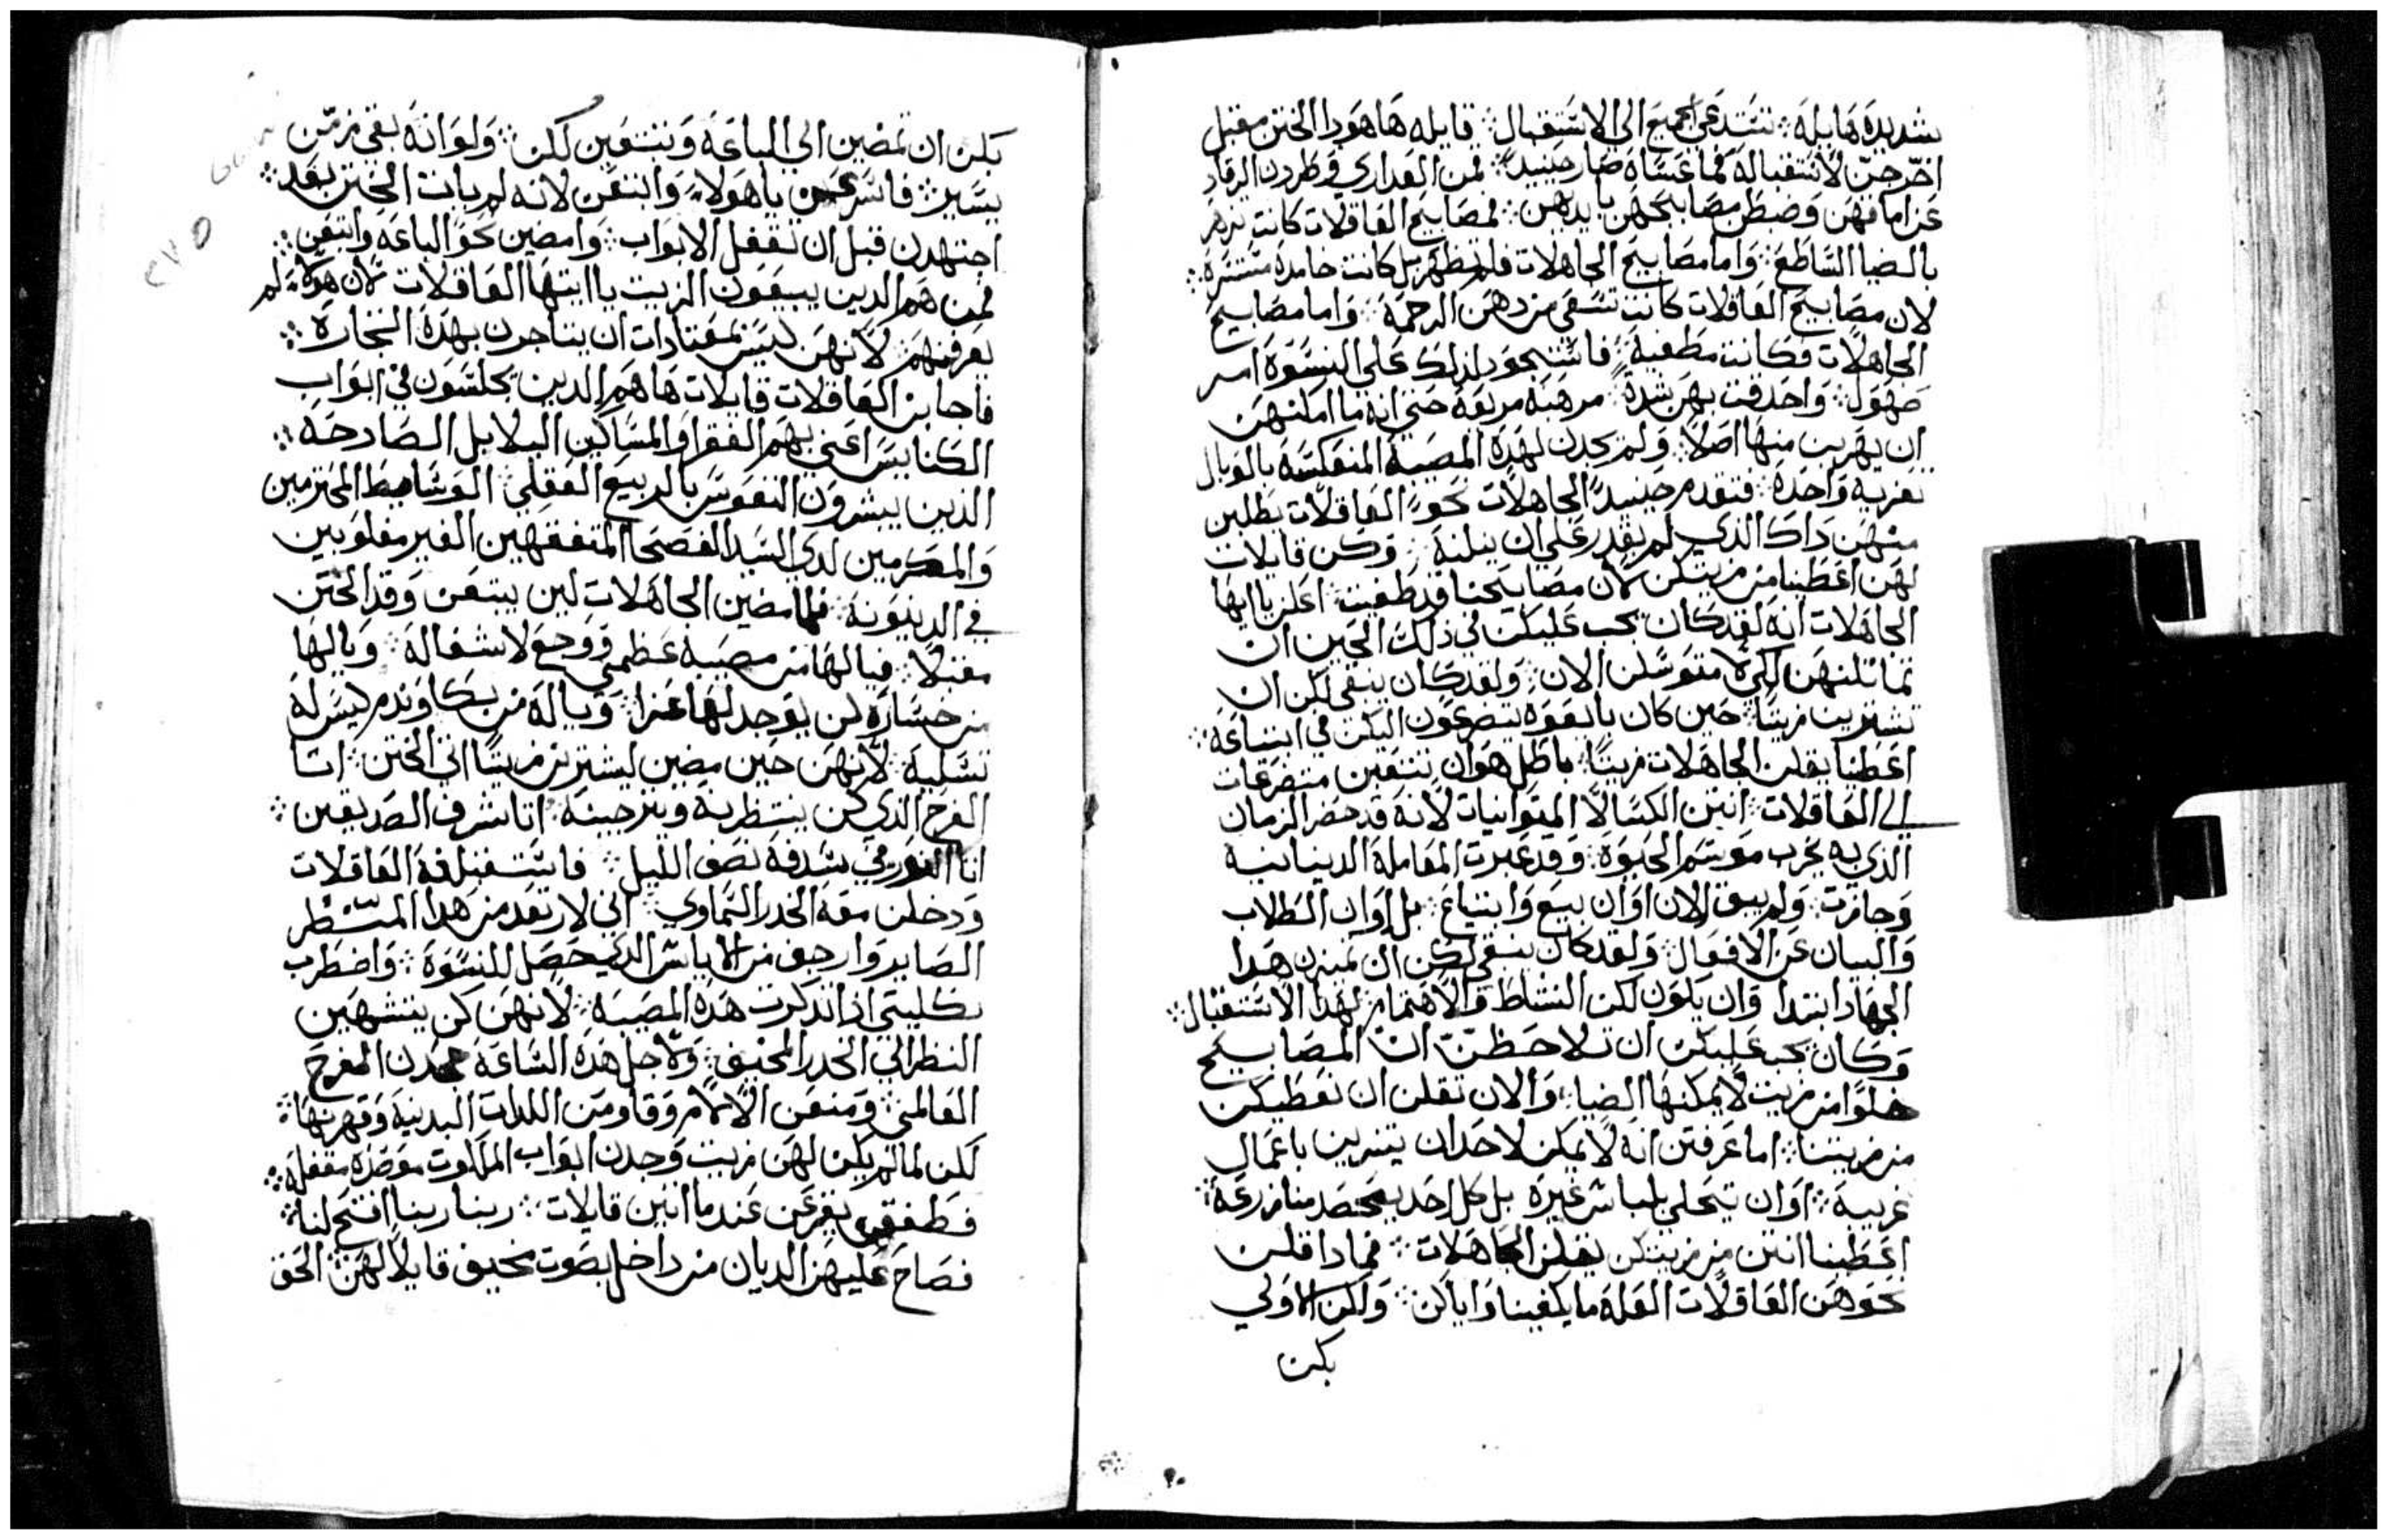 شديدة هايلة ⁘ تستدعي الجميع الى الاستقبال ⁘ قايله ها هودا الختن مقبل
اخرجن لاستقباله فما عساه صار حينيد ⁘ قمن العداري وطردن الرقاد
عن اماقهن وضبطن مصابيحهن بايديهن ⁘ فمصابيح العاقلات كانت تزهر
بالضيا الساطع ⁘ واما مصابيح الجاهلات فلم تظهر بل كانت خامدة مستترة ⁘
لان مصابيح العاقلات كانت تسقى من دهن الرحمة ⁘ واما مصابيح
الجاهلات فكانت مطفية ⁘ فاستحود اذ لك على النسوة امر
مهول ⁘ واحدقت بهن شدة مرهبة مريعة حتى انه ما امكنهن
ان يهربن منها اصلا ⁘ ولم يجدن لهذه المصيبة المنعكسة بالوبال
تعزية واحدة ⁘ فتقدم حينيد الجاهلات نحو العاقلات يطلبن
منهن داك الذي لم يقدر علي ان ينلنه ⁘ وكن قايلات
لهن اعطينا من زيتكن لان مصابيحنا قد طفيت ⁘ اعلن يا ايها
الجاهلات انه لقد كان يجب عليكن في ذلك الحين ان
تماثلنهن لكي لا متوسلن الان ⁘ ولقد كان ينبغي لكن ان
تشترين زيتا ⁘ حين كان بالقوة يتصرعون اليكن في ابتياعه ⁘
اعطينا يقلن الجاهلات زيتا ⁘ باطل هو ان تتعبن متضرعات
الى العاقلات ⁘ انتن الكسالا المتوانيات لانه قد حضر الزمان
الذي به يخرب موسم الحيوة ⁘ وقد عبرت المعاملة الدينانية
وجازت ⁘ ولم يبق الان اوان بيع وابتياع ⁘ بل اوان الطلاب
والبيان عن الافعال ⁘ ولقد كان ينبغي لكن ان تميزن هدا
الجهاد ابتدا وان يكون لكن النشاط والاهتمام لهدا الاستقبال ⁘
وكان يجب عليكن ان تلاحظن ان المصابيح
خلوا من زيت لا يمكنها الضيا ⁘ والان تقلن ان نعطيكن
من زيتنا ⁘ اما عرفتن انه لا يمكن لاحد ان يتزين باعمال
غريبة ⁘ او ان يتحلي بلباس غيره بل كل احد يحصد منا زرعه ⁘
اعطينا انتن من زيتكن يقلن الجاهلات ⁘ فمادا قلن
نحوهن العاقلات العله ما يكفينا واياكن ⁘ ولكن الاولي
بكن
بكن ان تمضين الى الباعة وتبتعين لكن ⁘ ولو انه بقي زمن
يسير ⁘ فاسرعن يا هولاء وابتعن لانه لم يات الختن بعد ⁘
اجتهدن قبل ان تقفل الابواب ⁘ وامضين نحو الباعه وابتعن ⁘
فمن هم الدين يبيعون الزيت يا ايتها العاقلات لان هولاء لم
يعرفنهم لانهن ليس بمعتادات ان يتاجرن بهده التجارة ⁘
فاجابن العاقلات قايلات ها هم الدين يجلسون في ابواب
الكنايس اعني بهم الفقرا والمساكين البلابل الصادحة ⁘
الذين يبشرون النفوس بالربيع العقلي ⁘ الوسايط المحترمين
والمكرمين لدي السيد الفصحا المتفقهين الغير مغلوبين
في الدينونة ⁘ فلما مضين الجاهلات لين يبتعن وقد الختن
مقبلا ⁘ فيا لها من مصيبة عظمى ووجع لا شفا له ⁘ ويا لها
من خسارة لن يوجد لها عزا ⁘ ويا له من بكا وندم ليس له
تسلية ⁘ لانهن حين مضين ليشترين زيتا اتى الختن ⁘ اتا
الفرح الذي كن ينتظرنه ويترجينه ⁘ اتا شرف الصديقين ⁘
اتا النور في سدفة نصف الليل ⁘ فاستقبلنه العاقلات
ودخلن معه الخدر السماوي ⁘ اني لارتعد من هدا المستطر
الصاير وارجف من الاياس الدي حصل للنسوة ⁘ واضطرب
بكليتي اذا تدكرت هده المصيبة ⁘ لانهن كن يتشهين
النظر الى الخدر المخيف ⁘ ولاجل هده الساعة جحدن الفرح
العالمي ⁘ ومنعن الالام وقاومن اللدات البدنية وقهرنها ⁘
لكن لما لم يكن لهن زيت وجدن ابواب الملكوت موصدة مقفلة ⁘
فطفقن يقرعن عندما اتين قايلات ⁘ ربنا ربنا افتح لنا ⁘
فصاح عليهن الديان من داخل بصوت مخيف قايلا لهن ⁘ الحق